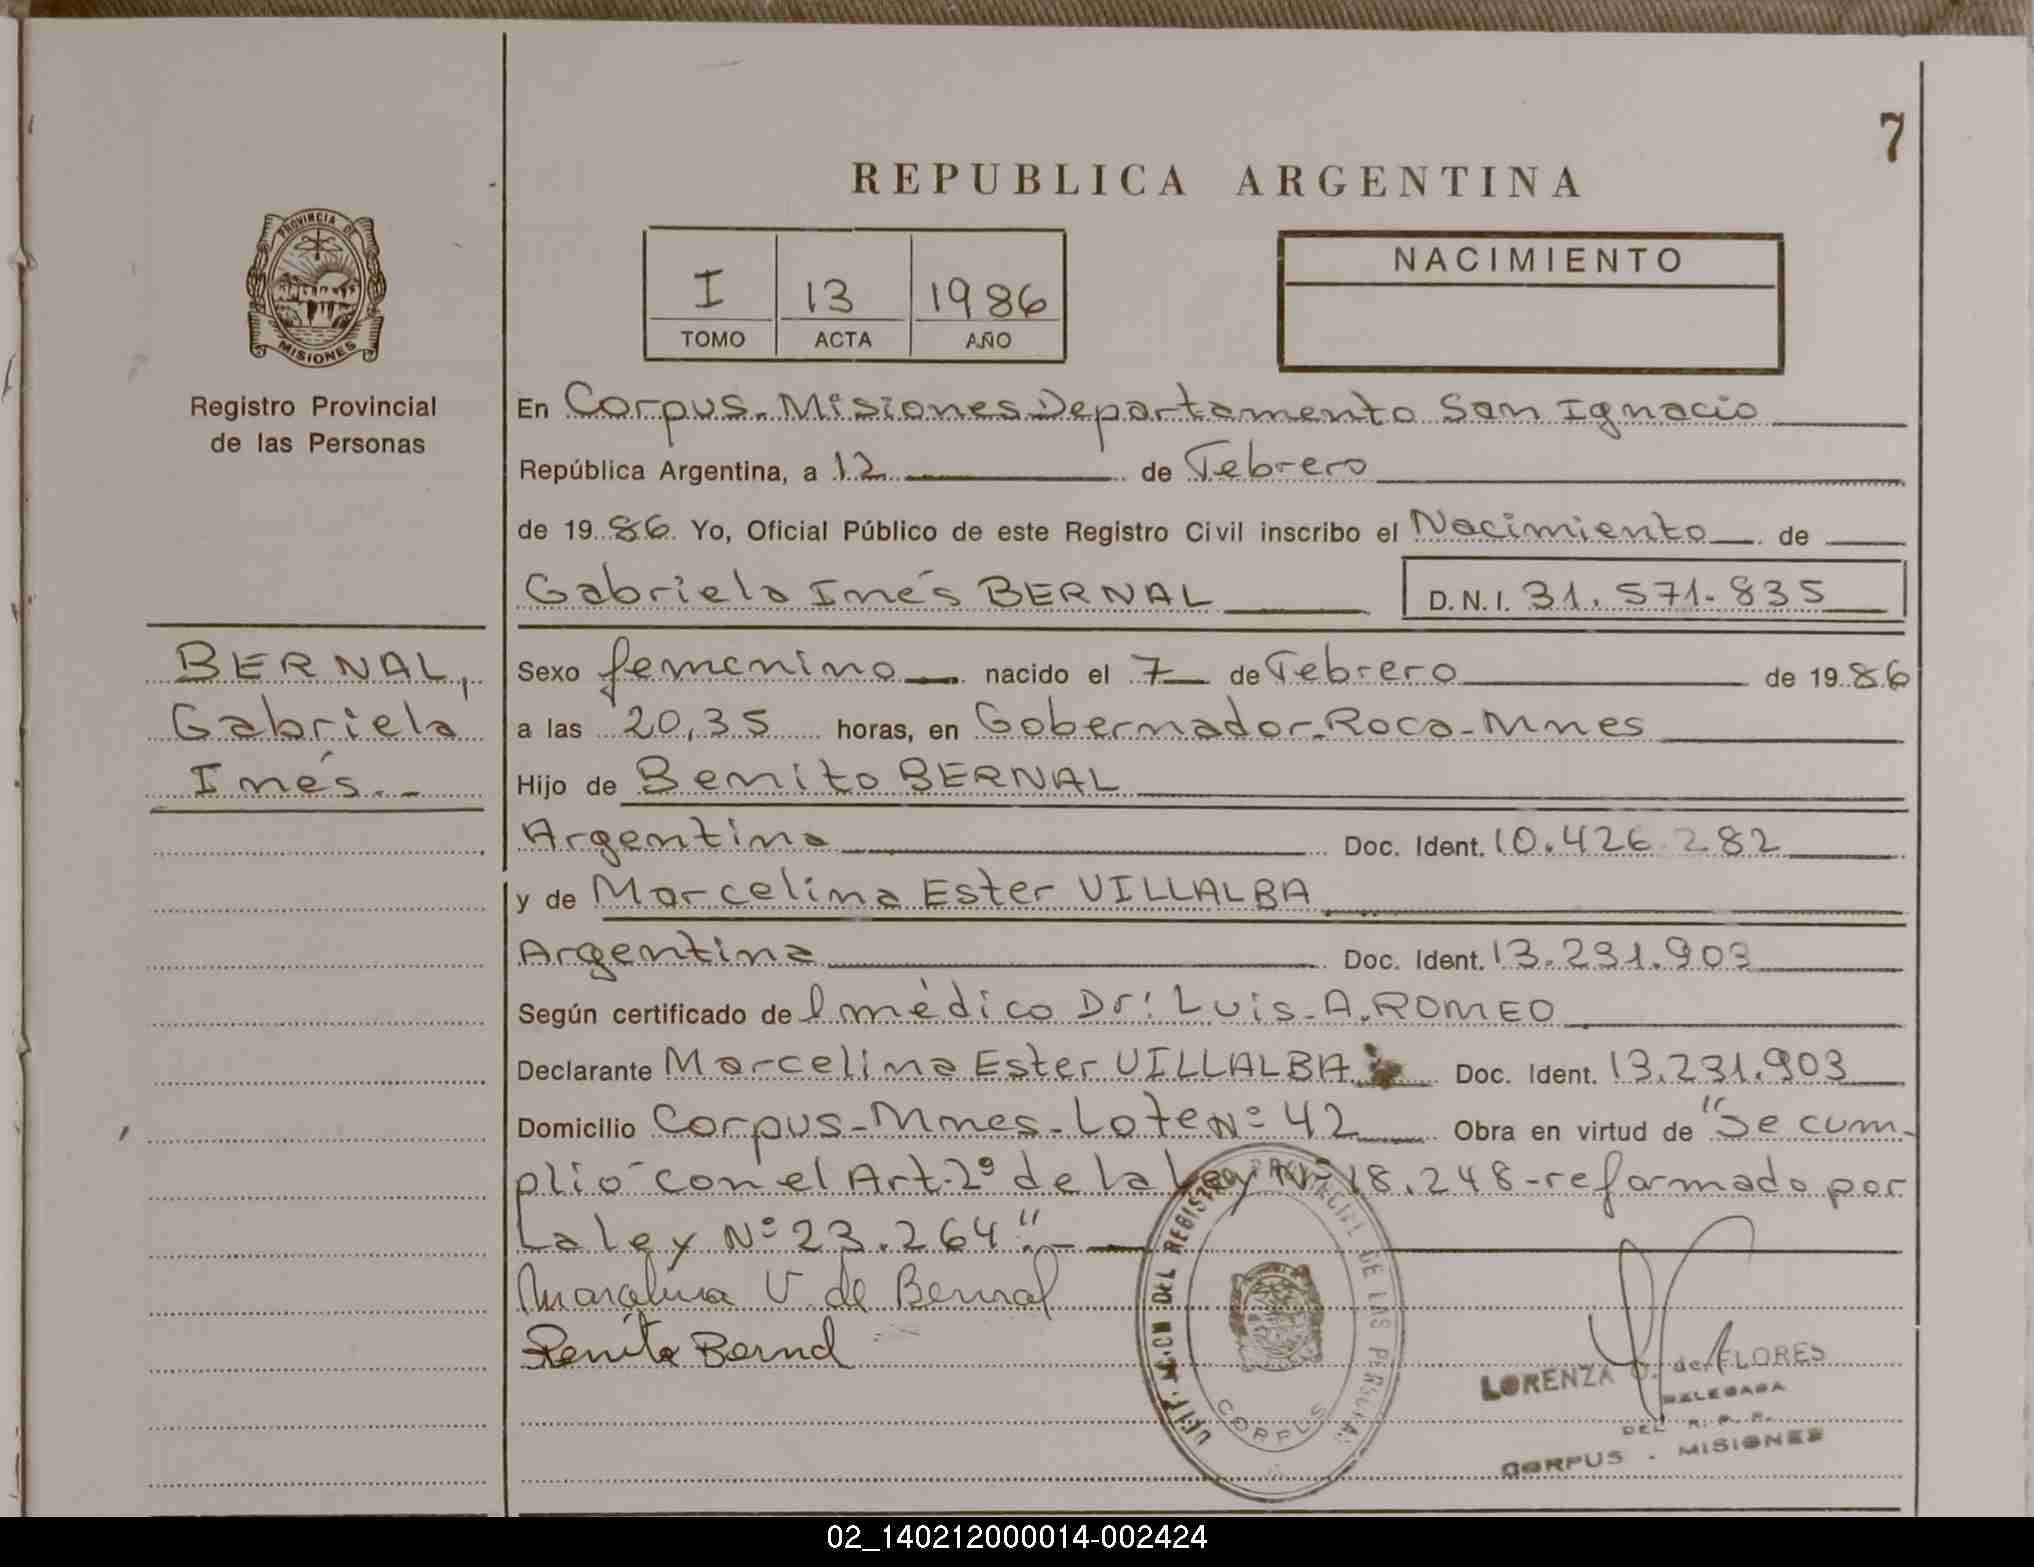 7
REPUBLICA ARGENTINA
PROVINCIA DE
MISIONES
Registro Provincial
de las Personas
I 13 1986
TOMO ACTA AÑO
NACIMIENTO
En Corpus-Misiones Departamento San Ignacio
República Argentina, a 12 de Febrero
de 1986 Yo, Oficial Público de este Registro Civil inscribo el Nacimiento de
Gabriela Inés BERNAL D.N.I. 31.571.835
BERNAL,
Gabriela
Inés.-
Sexo femenino nacido el 7 de Febrero de 1986
a las 20,35 horas, en Gobernador-Roca-Mnes
Hijo de Benito BERNAL
Argentina Doc. Ident. 10.426.282
y de Marcelina Ester VILLALBA
Argentina Doc. Ident. 13.231.903
Según certificado del médico Dr: Luis-A.ROMEO
Declarante Marcelina Ester VILLALBA Doc. Ident. 13.231.903
Domicilio Corpus-Mnes-Lote Nº 42 Obra en virtud de "Se cum-
plió con el Art.2º de la Ley Nº 18.248-reformado por
La ley Nº 23.264".-
Marcelina V. de Bernal
Benito Bernal
DEL REGISTRO PROVINCIAL DE LAS PERSONAS
CORPUS
LORENZA de FLORES
DELEGADA
DEL R. P. P.
CORPUS - MISIONES
02_140212000014-002424